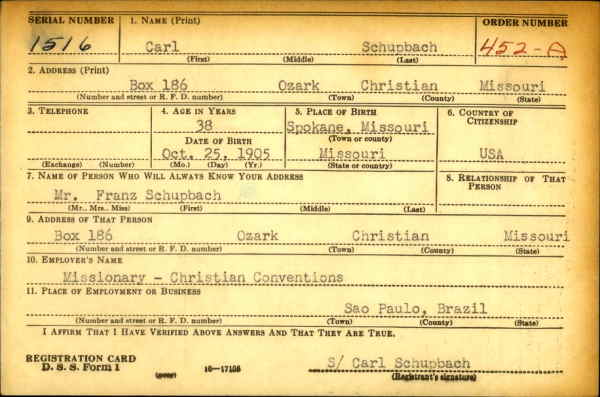 SERIAL NUMBER 1. NAME (Print) ORDER NUMBER
1516 Carl Schupbach 452-A
(First) (Middle) (Last)
2. ADDRESS (Print)
Box 186 Ozark Christian Missouri
(Number and street or R. F. D. number) (Town) (County) (State)
3. TELEPHONE 4. AGE IN YEARS 5. PLACE OF BIRTH 6. COUNTRY OF CITIZENSHIP
38 Spokane, Missouri
DATE OF BIRTH (Town or county)
Oct. 25, 1905 Missouri USA
(Exchange) (Number) (Mo.) (Day) (Yr.) (State or country)
7. NAME OF PERSON WHO WILL ALWAYS KNOW YOUR ADDRESS 8. RELATIONSHIP OF THAT PERSON
Mr. Franz Schupbach
(Mr., Mrs., Miss) (First) (Middle) (Last)
9. ADDRESS OF THAT PERSON
Box 186 Ozark Christian Missouri
(Number and street or R. F. D. number) (Town) (County) (State)
10. EMPLOYER'S NAME
Missionary - Christian Conventions
11. PLACE OF EMPLOYMENT OR BUSINESS
Sao Paulo, Brazil
(Number and street or R. F. D. number) (Town) (County) (State)
I AFFIRM THAT I HAVE VERIFIED ABOVE ANSWERS AND THAT THEY ARE TRUE.
REGISTRATION CARD
D. S. S. Form 1 (over) 16-17105 S/ Carl Schupbach
(Registrant's signature)